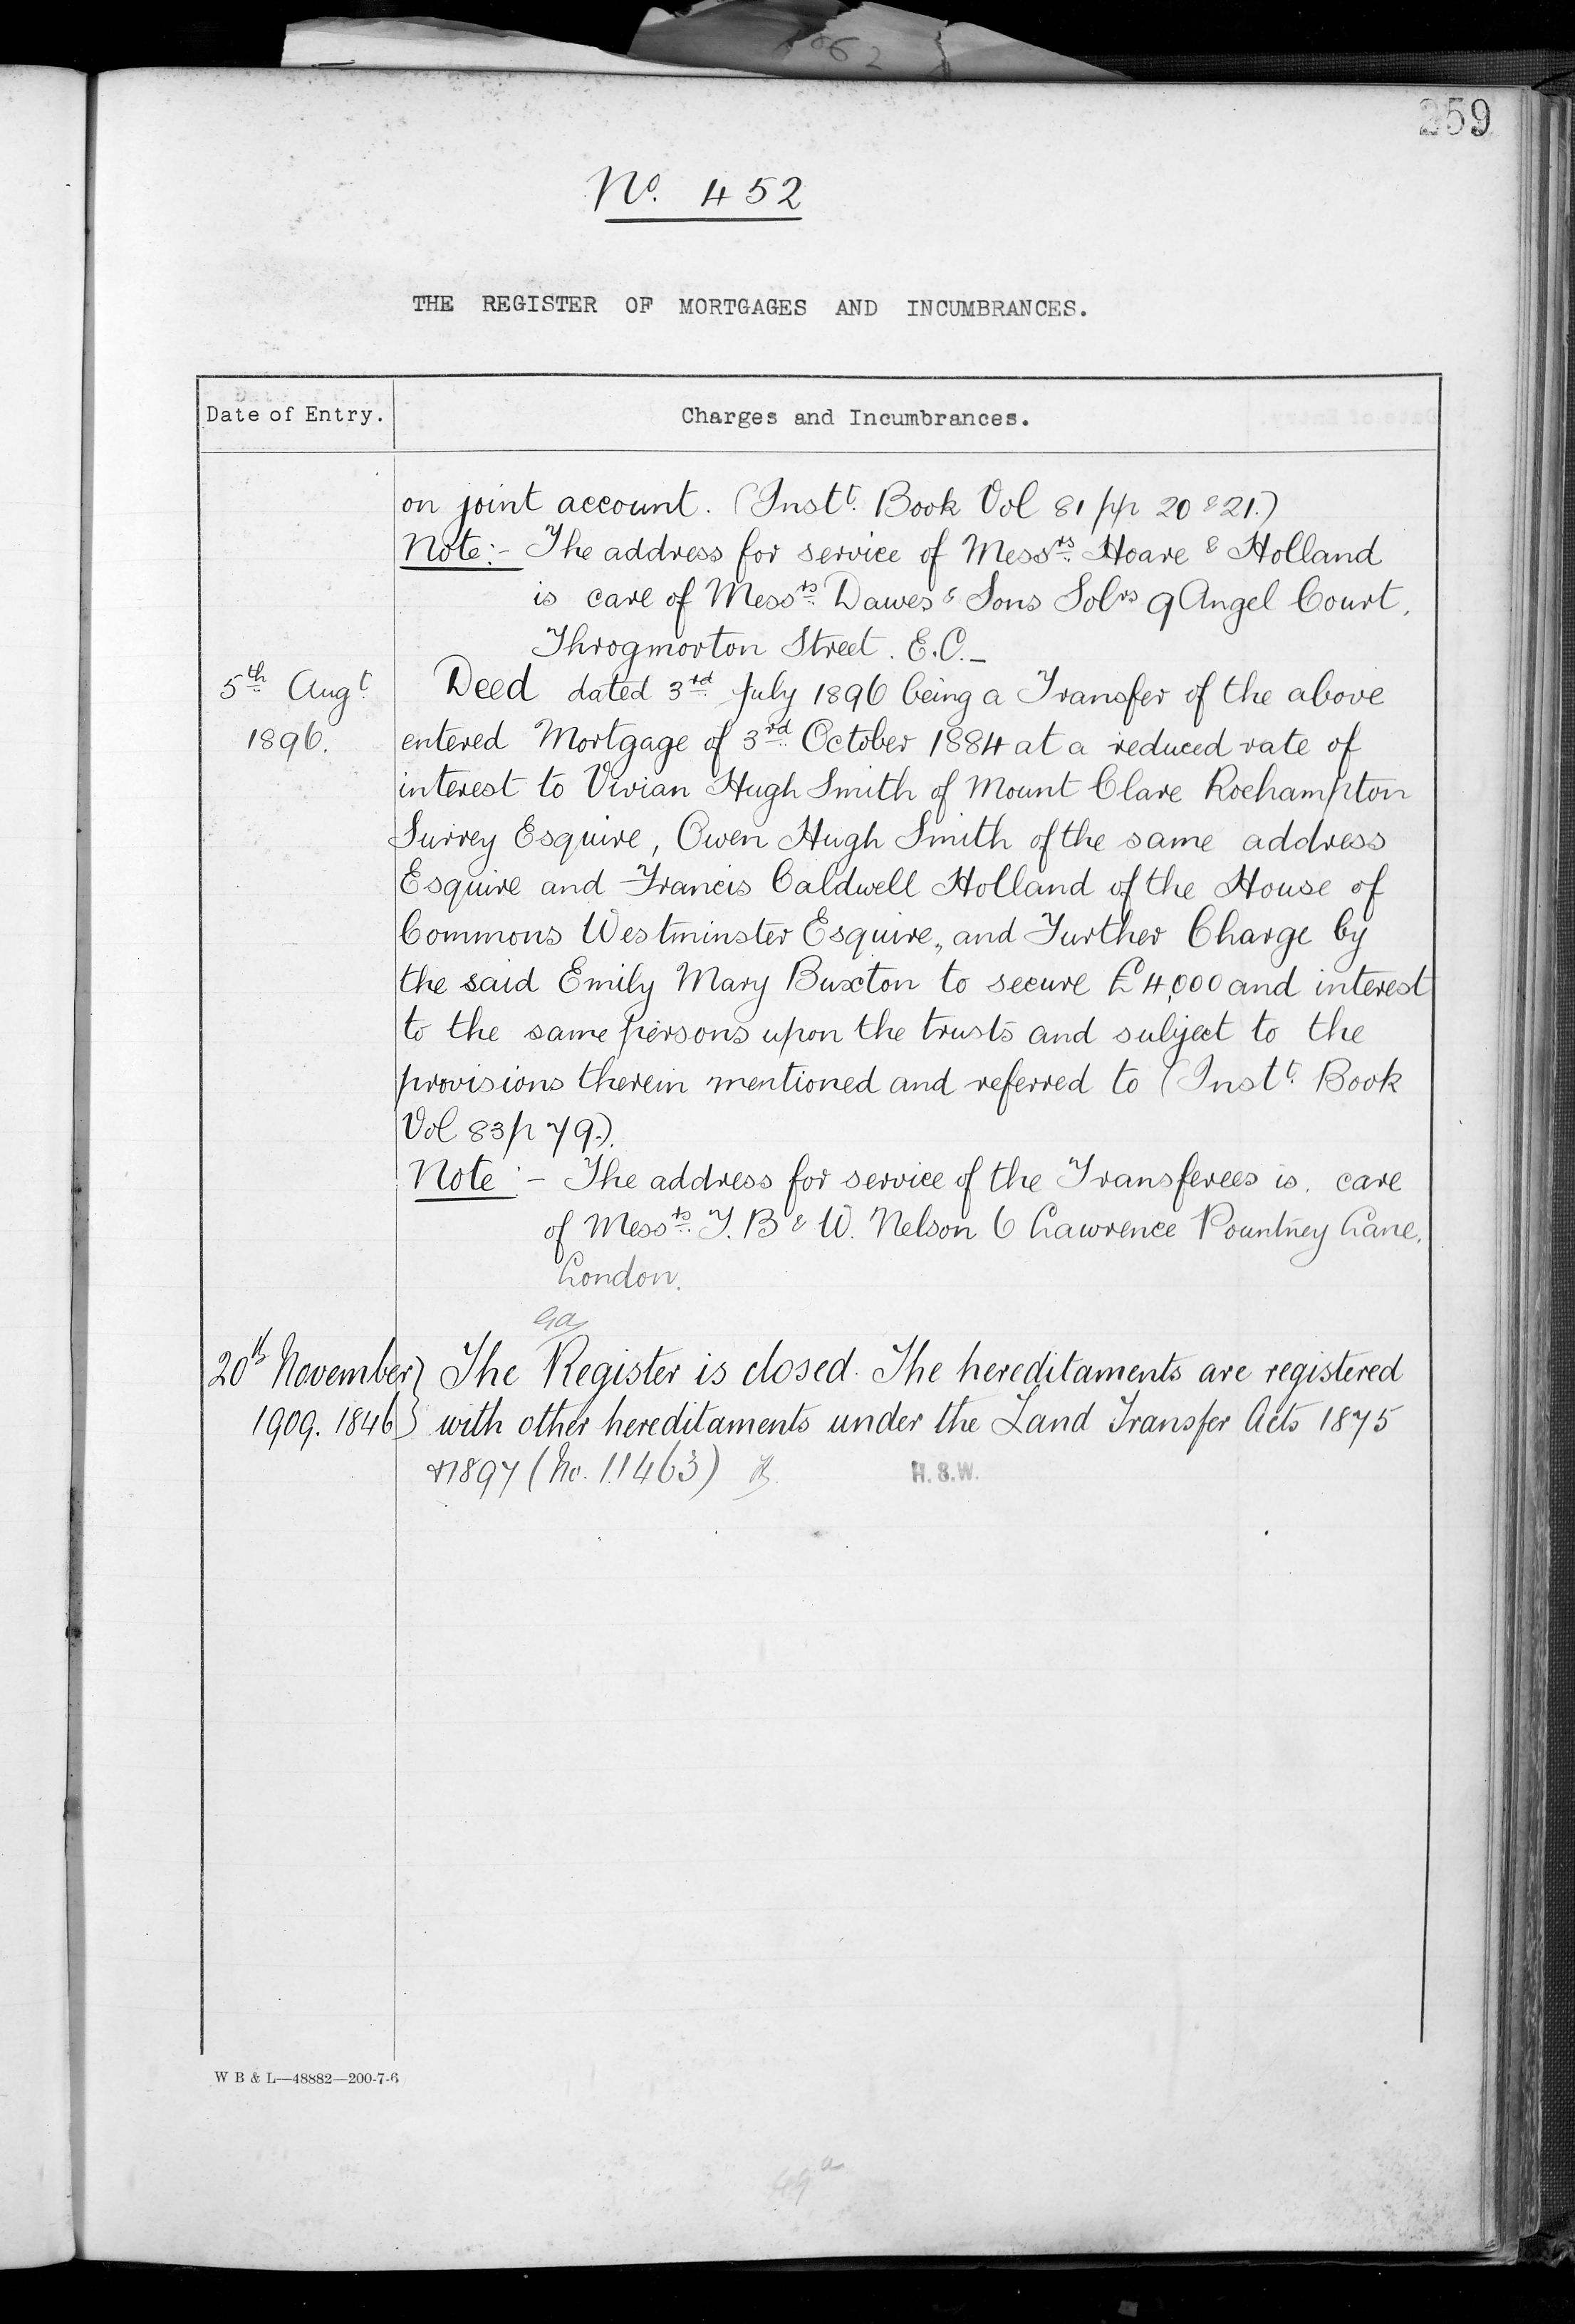 259
No. 452
THE REGISTER OF MORTGAGES AND INCUMBRANCES.
Date of Entry.
Charges and Incumbrances.
on joint account. (Instt. Book Vol 81 pp 20 & 21.)
Note:- The address for service of Messrs. Hoare & Holland
is care of Messrs. Dawes & Sons Solrs 9 Angel Court,
Throgmorton Street. E.C.-
5th Augt. Deed dated 3rd July 1896 being a Transfer of the above
1896. entered Mortgage of 3rd October 1884 at a reduced rate of
interest to Vivian Hugh Smith of Mount Clare Roehampton
Surrey Esquire, Owen Hugh Smith of the same address
Esquire and Francis Caldwell Holland of the House of
Commons Westminster Esquire, and Further Charge by
the said Emily Mary Buxton to secure £4,000 and interest
to the same persons upon the trusts and subject to the
provisions therein mentioned and referred to (Instt. Book
Vol 83 p 79.).
Note:- The address for service of the Transferees is care
of Messrs. T. B & W. Nelson 6 Lawrence Pountney Lane.
London.
20th November } The Register is closed. The hereditaments are registered
1909. 1846 } with other hereditaments under the Land Transfer Acts 1875
& 1897 (No. 11463) H.S.W.
W B & L—48882—200-7-6